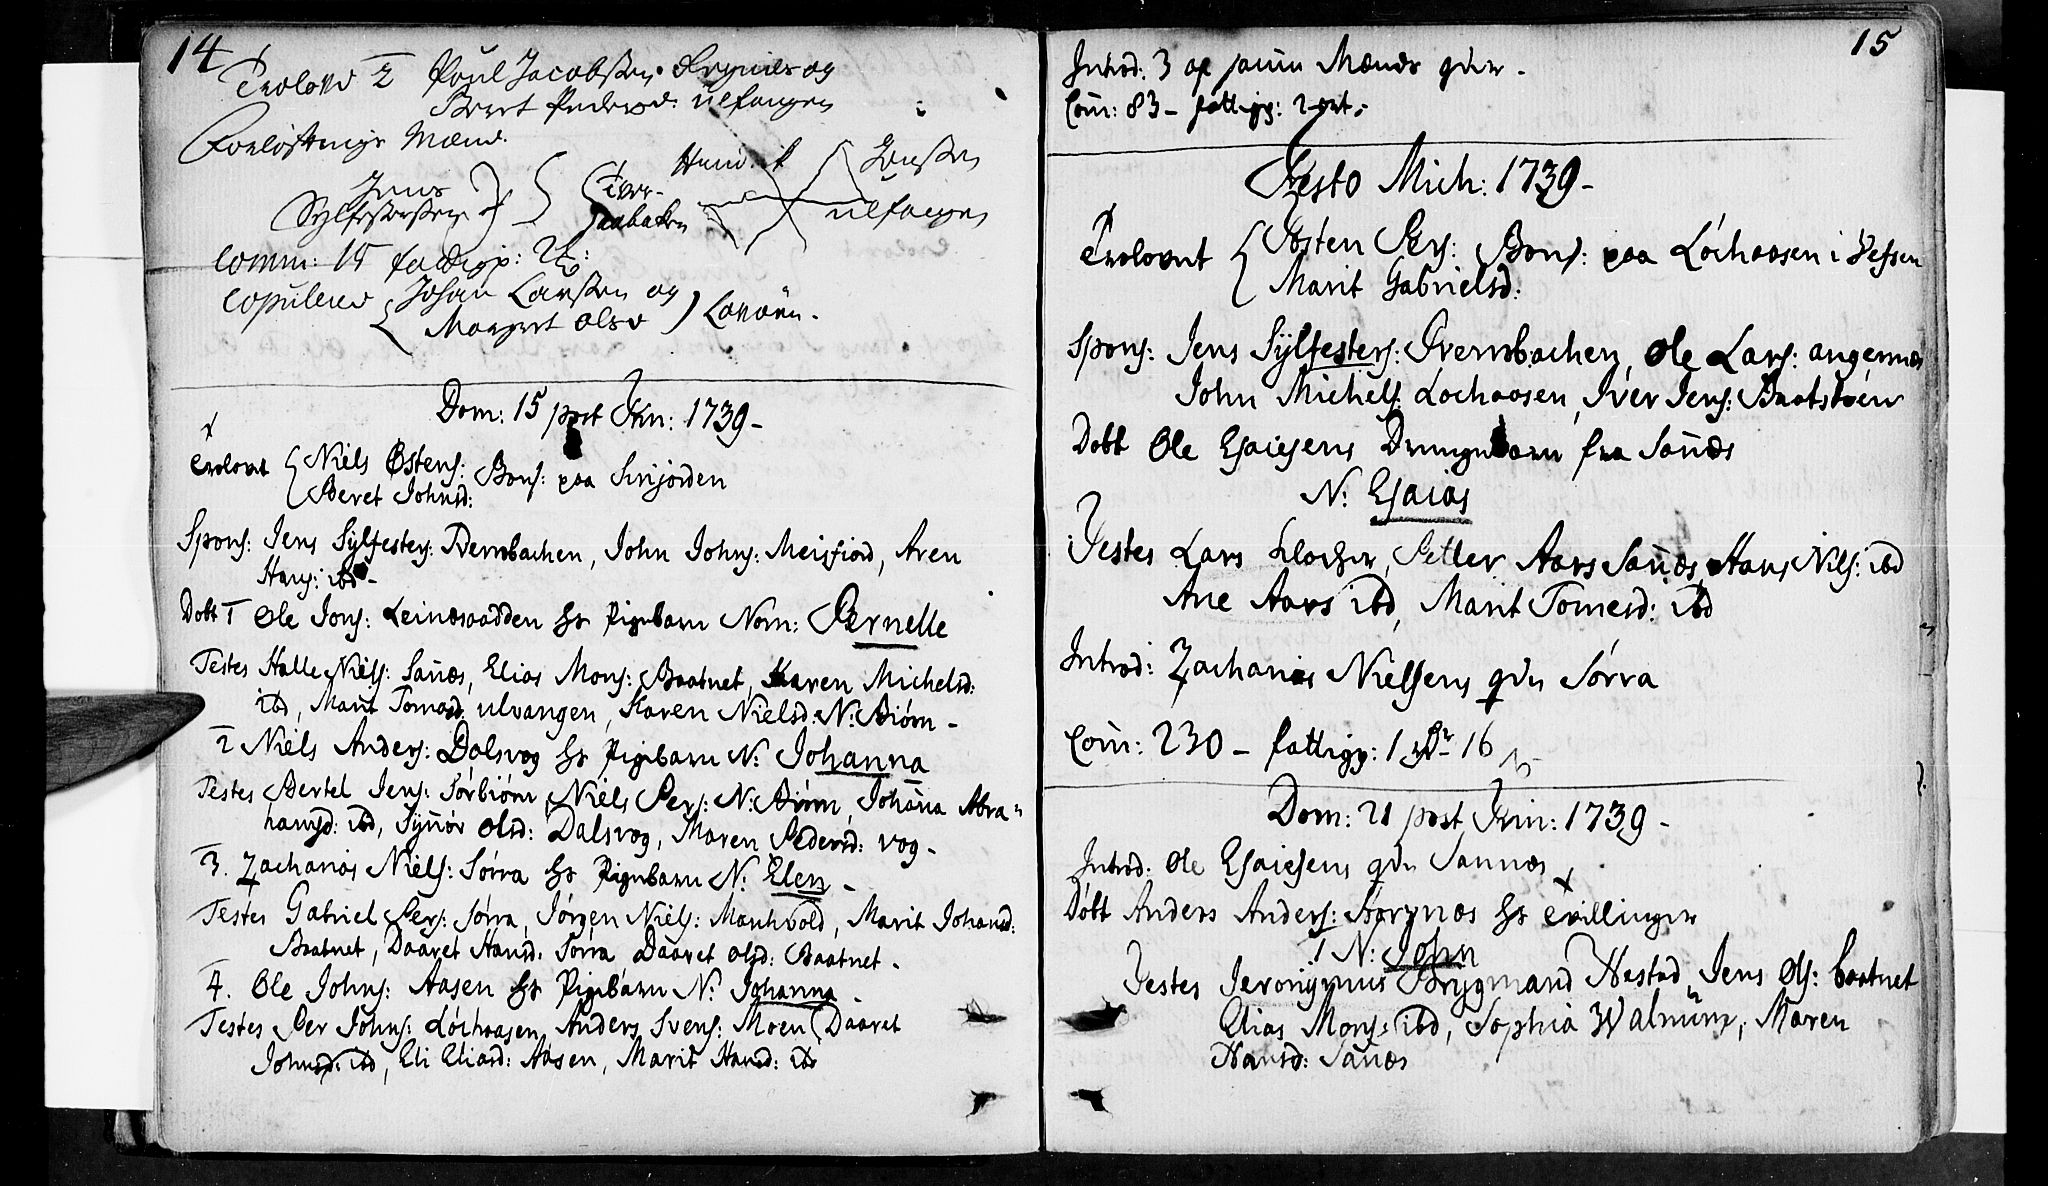 14
Trolovd 2 Poul Jacobssen og
Beret Pedersd: ulfangen
Forløftnings Mænd.
Jens
Sylfestersen
Hendrik Jenssen
ulfangen
Comm: 15 fattige:
Copulered Johan Larssen og
Margret Olsd
Dom: 15 post Trin: 1739-
Trolovet Niels Østens: Bons: paa Sinjorden
Beret Johnsd:
Spons: Jens Sylfesters: Qvernbachen, John Johns: Meisfiord, Aren
Hans: ibd-
Døbt 1 Ole Jons: Leinesoadden hs Pigebarn Nom: Pernelle
Testes Halle Niels: Sañæs, Elias Mons: Baatnet, Karen Michelsd:
ibd, Marit Tomasd ulvangen, Karen Nielsd: N: Biórn-
2 Niels Anders: Dalsvog hs Pigebarn N: Johanna
Testes Bertel Jens: Sørbiórn, Niels Pers: N: Biórn, Johaña Abra=
hamsd: ibd, Syñøv Olsd: Dalsvog, Maren Pedersd: vog-
3. Zacharias Niels: Sórra hs Pigebarn N: Elen-
Testes Gabriel Pers: Sórra, Jórgen Niels: Manhvold, Marit Johansd:
Baatnet, Daaret Hansd: Sórra Daaret Olsd: Baatnet-
4. Ole Johns: Aasen hs Pigebarn N: Johanna-
Testes Per Johns: Lóchaasen, Anders Svens: Moen, Daaret
Johnsd: ibd, Eli Eliasd: Aasen, Marit Hansd: ibd
15
Introd: 3 af
Com: 83- fattige: 2 ort.
Festo Mich: 1739-
Trolovet Østen Pers: Bons: paa Lóchaasen i Vefsen
Marit Gabrielsd:
Spons: Jens Sylfesters: Qvernbachen, Ole Lars: angernæs
John Michels: Lochaasen, Iver Jens: Baatstøen
Døbt Ole Esaiesens Drengebarn fra Sañæs
N: Esaias
Testes Lars Klocker, Petter Aars Sañæs, Hans Nils: ibd
Ane Aars ibd, Marit Tomesd: ibd
Introd: Zacharias Nielsens qvin Sórra
Com: 230- fattige: 1 16
Dom: 21 post Trin: 1739-
Introd: Ole Esaiesens qvin Sannæs
Døbt Anders Anders: hs Tvillinger
1 N: John
Testes Jeronÿmus Brygmand Nestad, Jens Ols: baatnet
Elias Mons: ibd, Sophia Walnúm, Maren
Hansd: Sañæs